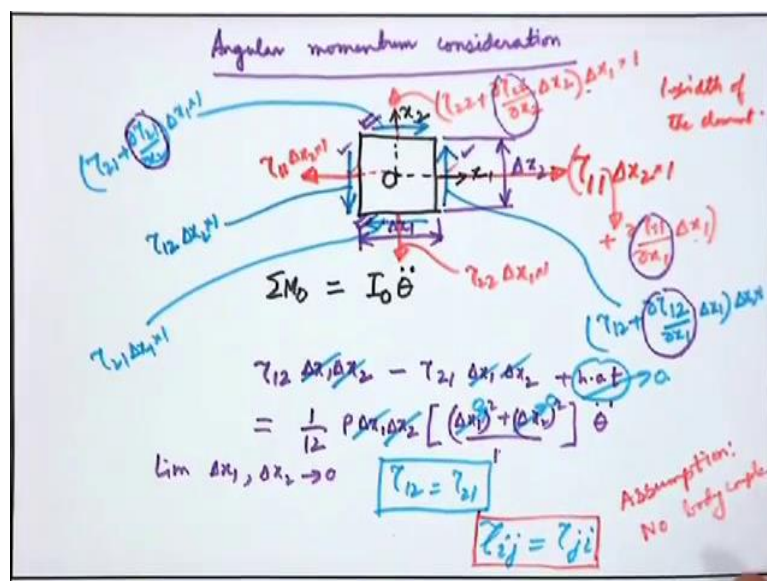 Angular momentum consideration
(τ₂₂ + ∂τ₂₂/∂x₂ Δx₂) Δx₁×1
1→width of
the element.
(τ₂₁ + ∂τ₂₁/∂x₂ Δx₂) Δx₁×1
x₂
τ₁₁ Δx₂×1
O
x₁
Δx₂
(τ₁₁) Δx₂×1
+ ∂τ₁₁/∂x₁ Δx₁)
τ₁₂ Δx₂×1
Δx₁
τ₂₂ Δx₁×1
ΣM₀ = I₀ θ̈
(τ₁₂ + ∂τ₁₂/∂x₁ Δx₁) Δx₂×1
τ₂₁ Δx₁×1
τ₁₂ Δx₁Δx₂ − τ₂₁ Δx₁ Δx₂ + h.o.t → 0
= 1/12 ρ Δx₁Δx₂ [(Δx₁)² + (Δx₂)²] θ̈
lim Δx₁, Δx₂ → 0
τ₁₂ = τ₂₁
τᵢⱼ = τⱼᵢ
Assumption:
No body couple